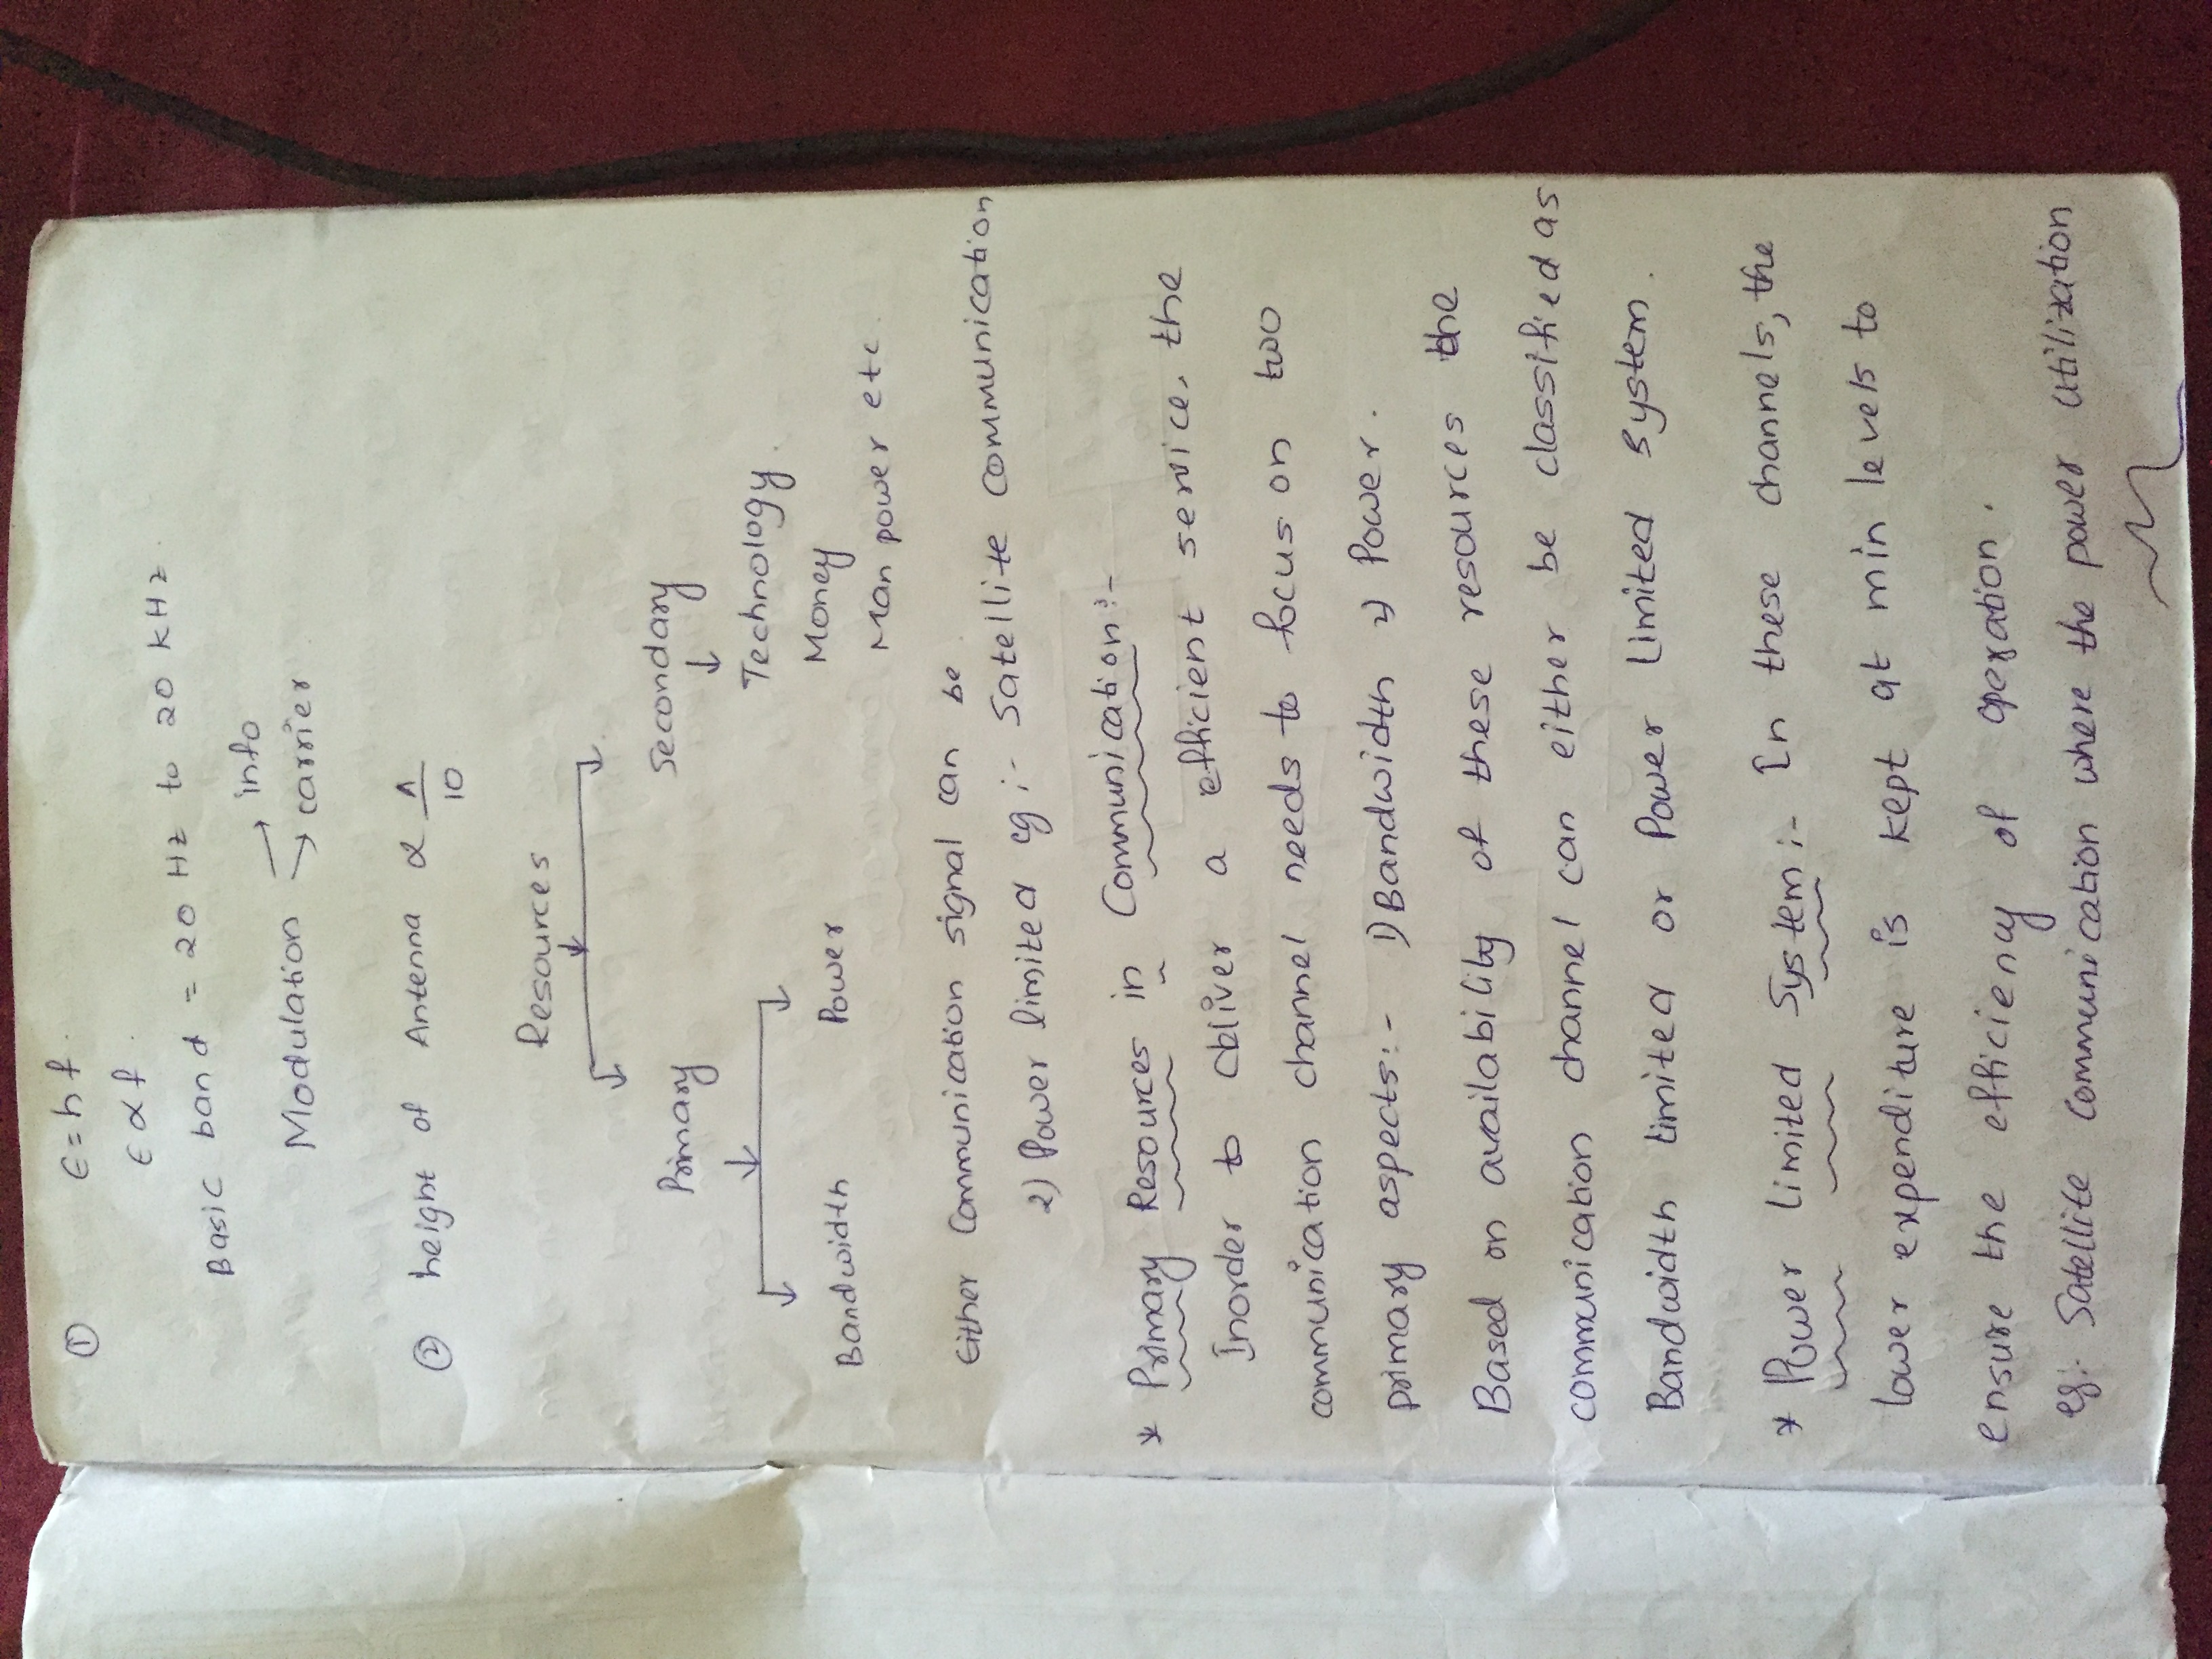 ① E = h f.
E ∝ f.
Basic band = 20 Hz to 20 kHz.
Modulation → info
→ carrier
② height of Antenna ∝ λ/10
Resources
Primary Secondary
Bandwidth Power Technology.
Money
Man power etc.
Either Communication signal can be
2) Power limited eg :- Satellite communication
* Primary Resources in Communication :-
Inorder to deliver a efficient service, the
communication channel needs to focus on two
primary aspects :- 1) Bandwidth 2) Power.
Based on availability of these resources the
communication channel can either be classified as
Bandwidth limited or Power limited system.
* Power limited System :- In these channels, the
lower expenditure is kept at min levels to
ensure the efficiency of operation.
eg:- Satellite communication where the power utilization